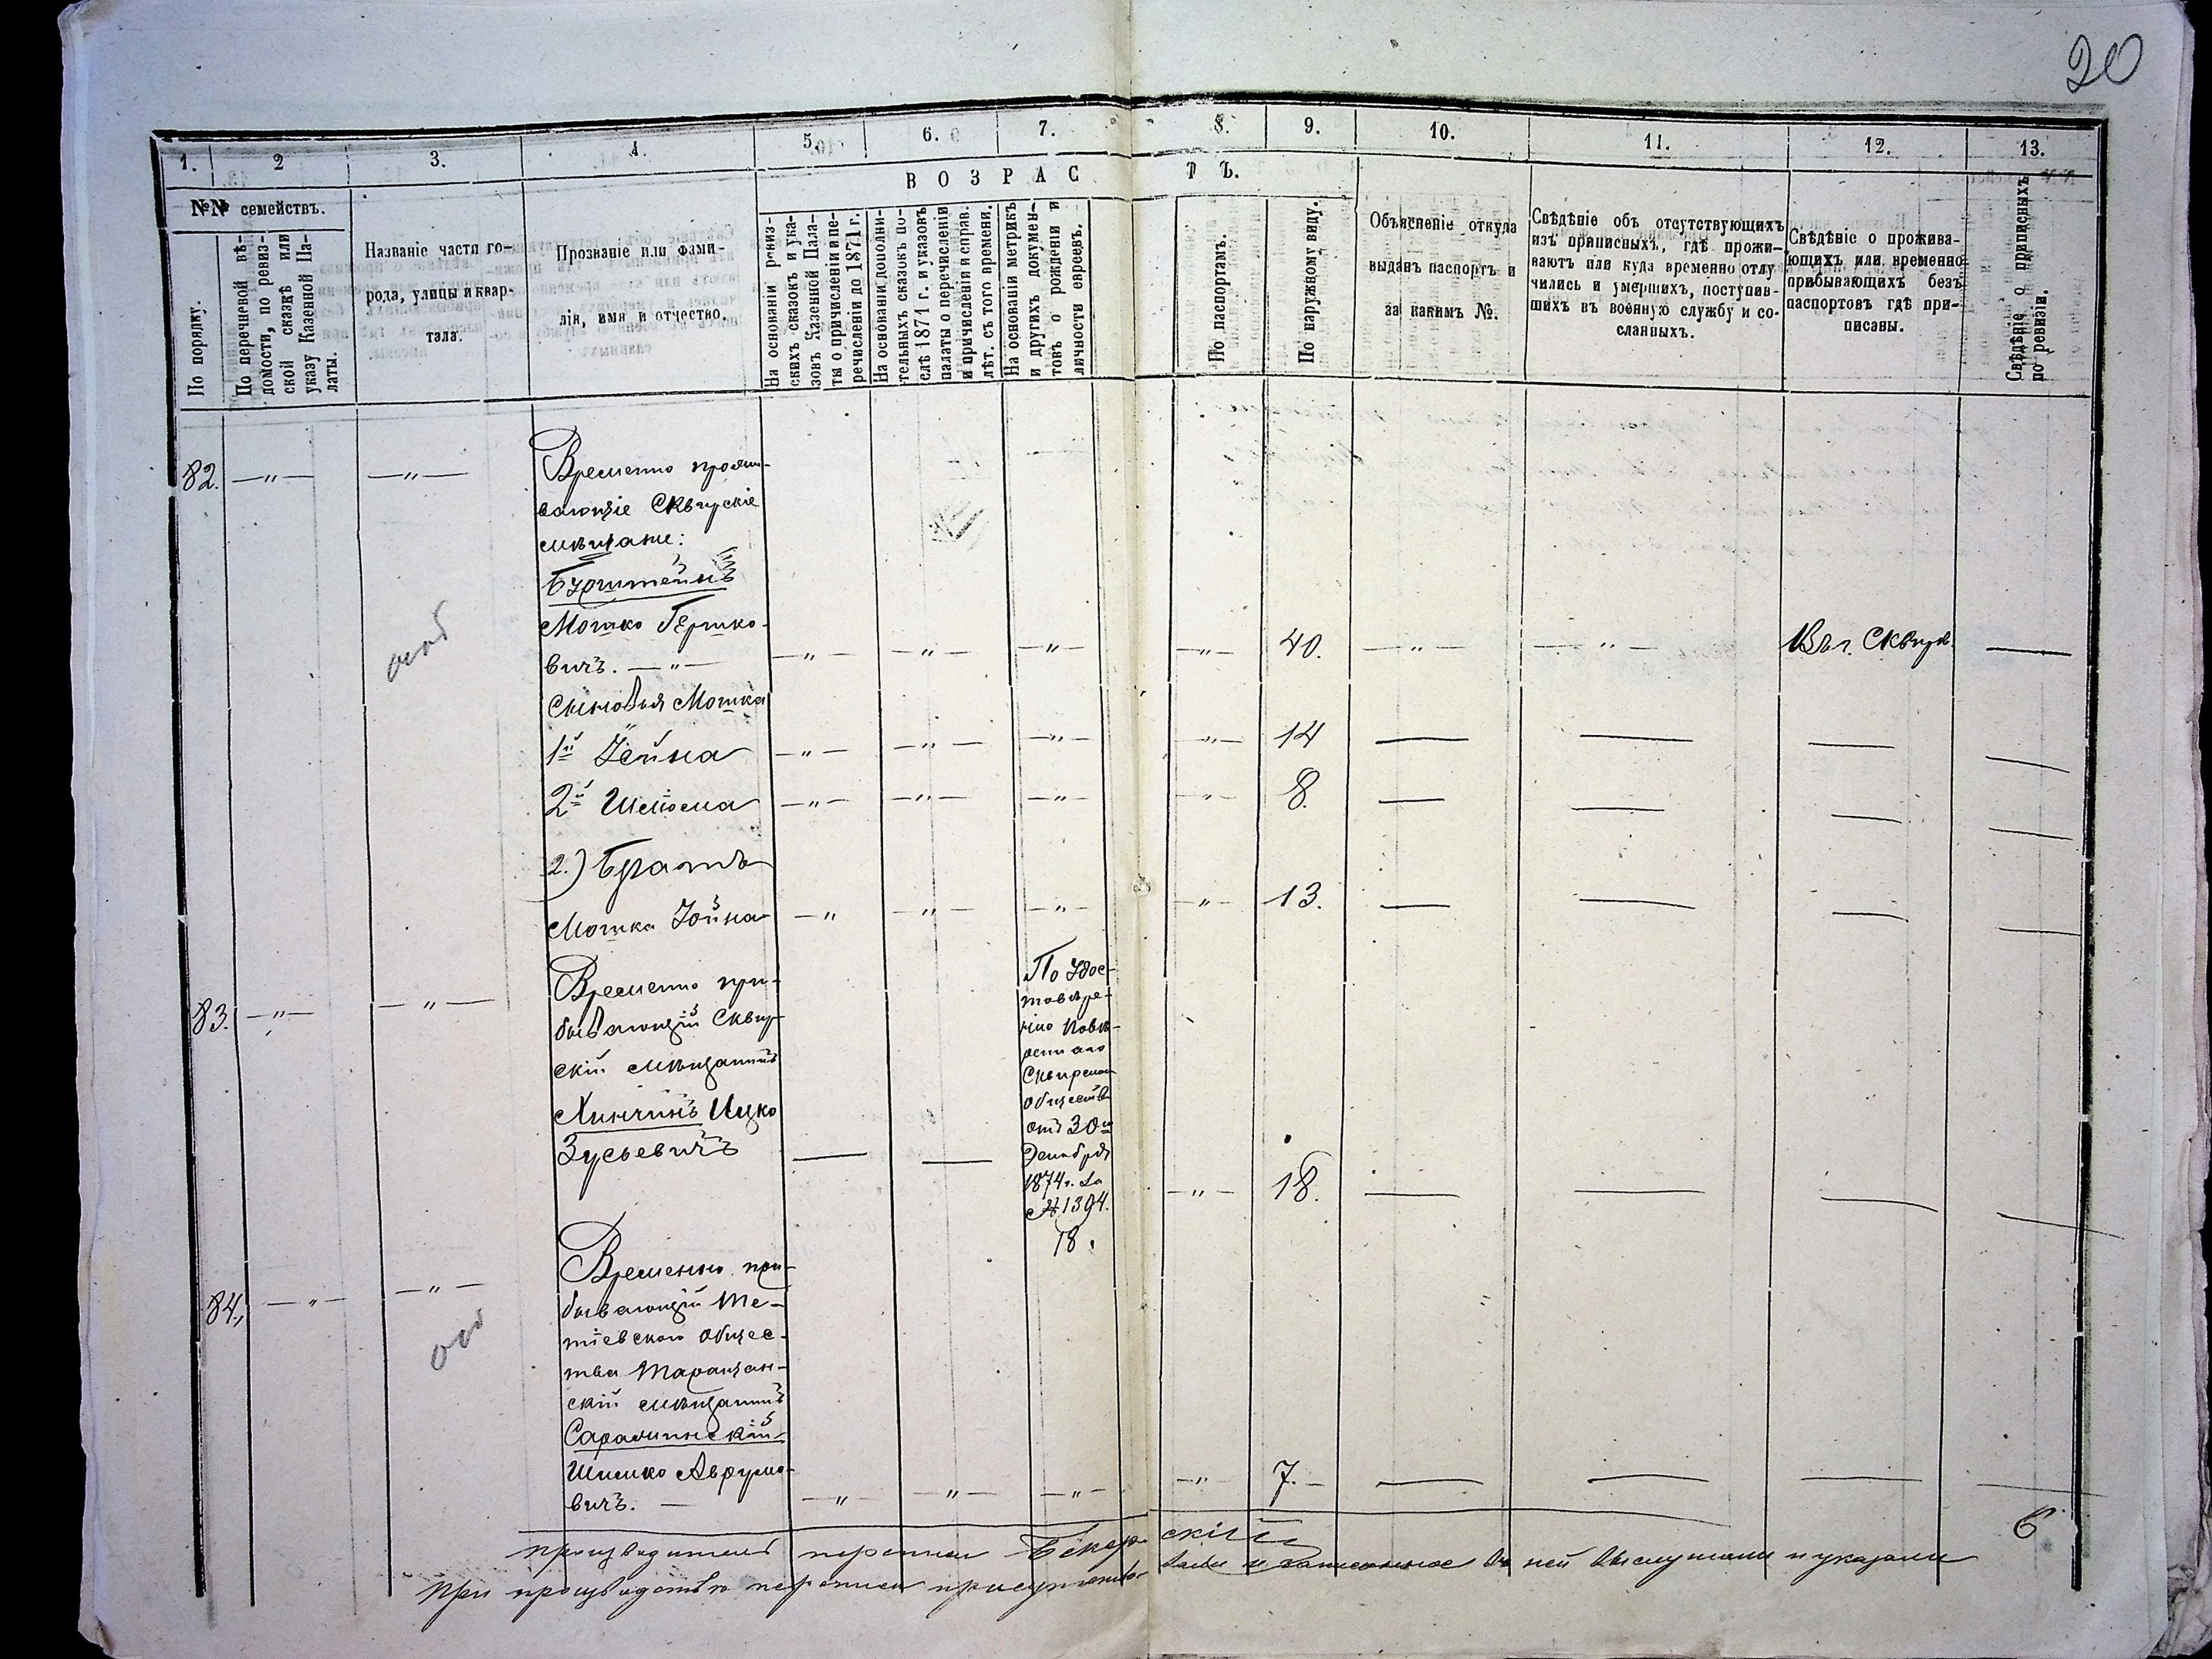 20
1. 2 3. 4. 5. 6. 7. 8. 9. 10. 11. 12. 13.
ВОЗРАСТЪ.
№№ семействъ.
По порядку.
По перечневой вѣ-
домости, по ревиз-
ской сказкѣ или
указу Казенной Па-
латы.
Названіе части го-
рода, улицы и квар-
тала.
Прозваніе или фами-
лія, имя и отчество.
На основаніи ревиз-
скихъ сказокъ и ука-
зовъ Казенной Пала-
ты о причисленіи и пе-
речисленіи до 1871 г.
На основаніи дополни-
тельныхъ сказокъ по-
слѣ 1871 г. и указовъ
палаты о перечисленіи
и причисленіи и исправ.
лѣт. съ того времени.
На основаніи метрикъ
и другихъ докумен-
товъ о рожденіи и
личности евреевъ.
По паспортамъ.
По наружному виду.
Объясненіе откуда
выданъ паспортъ и
за какимъ №.
Свѣдѣніе объ отсутствующихъ
изъ приписныхъ, гдѣ прожи-
ваютъ или куда временно отлу
чились и умершихъ, поступив-
шихъ въ военную службу и со-
сланныхъ.
Свѣдѣніе о прожива-
ющихъ или временно
прибывающихъ безъ
паспортовъ гдѣ при-
писаны.
Свѣдѣніе о приписныхъ
по ревизіи.
82. —"— —"— Временно прожи-
вающіе Сквирскіе
мѣщане:
Бурштейнъ
Мошко Гершко-
вичъ. —"— —"— —"— —"— —"— 40. —"— —"— Въ г. Сквирѣ. —
Сыновья Мошка
1й Хейна —"— —"— —"— —"— 14 — — — —
2й Шлёома —"— —"— —"— —"— 8. — — — —
2.) Братъ
Мошка Іойна —" —"— —"— —"— 13. — — — —
83. —"— —"— Временно при-
бывающій Сквир-
скій мѣщанинъ
Линчинъ Ицко
Зусьевичъ — — —"— 18. — — — —
По удос-
товѣре-
нію повѣ-
реннаго
Сквирскаго
общества
отъ 30го
Декабря
1874 г. за
№ 1394.
18.
84., —"— —"— Временно при-
бывающій Те-
тіевскаго общес-
тва Таращан-
скій мѣщанинъ
Сарачинскій
Шимко Аврумо-
вичъ. — —"— —"— —"— —"— 7.— — — — —
6
производитель переписи
При производствѣ переписи присутство вали и записанное въ ней выслушали и указали